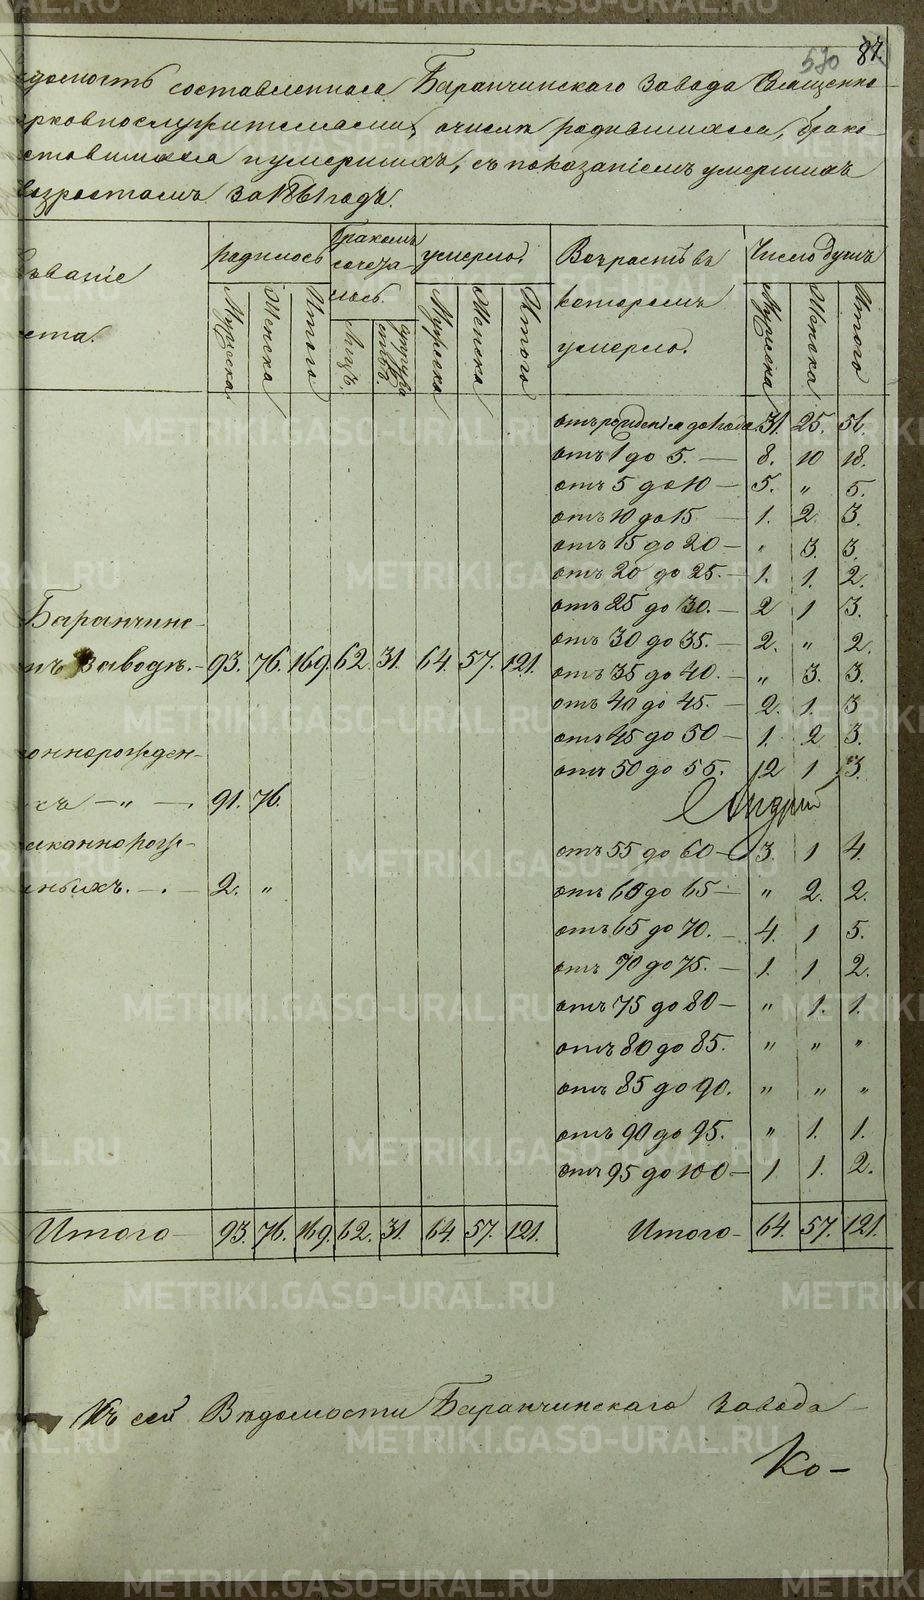 530 87.
домость составленная Баранчинскаго Завода Священно
рковнослужителями, о числе родившихся, брако
ставшихся и умершихъ, съ показаніемъ умершихъ
возрастамъ за 1861 годъ.
званіе
ста.
родилось
Мужеска
Женска
Итого
Бракомъ сочеталось.
Лицъ.
умерло.
Мужеска
Женска
Итого
Возрастъ въ
которомъ
умерло.
Число душъ
Мужеска
Женска
Итого
отъ рожденія до 1 года 31. 25. 56.
отъ 1 до 5. — 8. 10 18.
отъ 5 до 10 — 5. „ 5.
отъ 10 до 15 — 1. 2. 3.
отъ 15 до 20 — „ 3. 3.
отъ 20 до 25. — 1. 1. 2.
отъ 25 до 30. — 2 1 3.
отъ 30 до 35. — 2. „ 2.
отъ 35 до 40. — „ 3. 3.
отъ 40 до 45. — 2. 1. 3
отъ 45 до 50 — 1. 2 3.
отъ 50 до 55. 2 1 3.
Андрей
отъ 55 до 60 — 3. 1 4.
отъ 60 до 65 — „ 2. 2.
отъ 65 до 70. — 4. 1 5.
отъ 70 до 75. — 1. 1 2.
отъ 75 до 80 — „ 1. 1.
отъ 80 до 85. „ „ „
отъ 85 до 90. „ „ „
отъ 90 до 95. „ 1. 1.
отъ 95 до 100 — 1 1. 2.
Баранчинс-
мъ Заводе. — 93. 76. 169. 62. 31. 64. 57. 121.
оннорожден-
хъ — „ — . 91. 76.
аконнорож-
ныхъ. — . — 2. „
Итого — 93. 76. 169. 62. 31. 64. 57. 121. Итого — 64. 57. 121.
Къ сей Вѣдомости Баранчинскаго Завода —
Ко —
METRIKI.GASO-URAL.RU